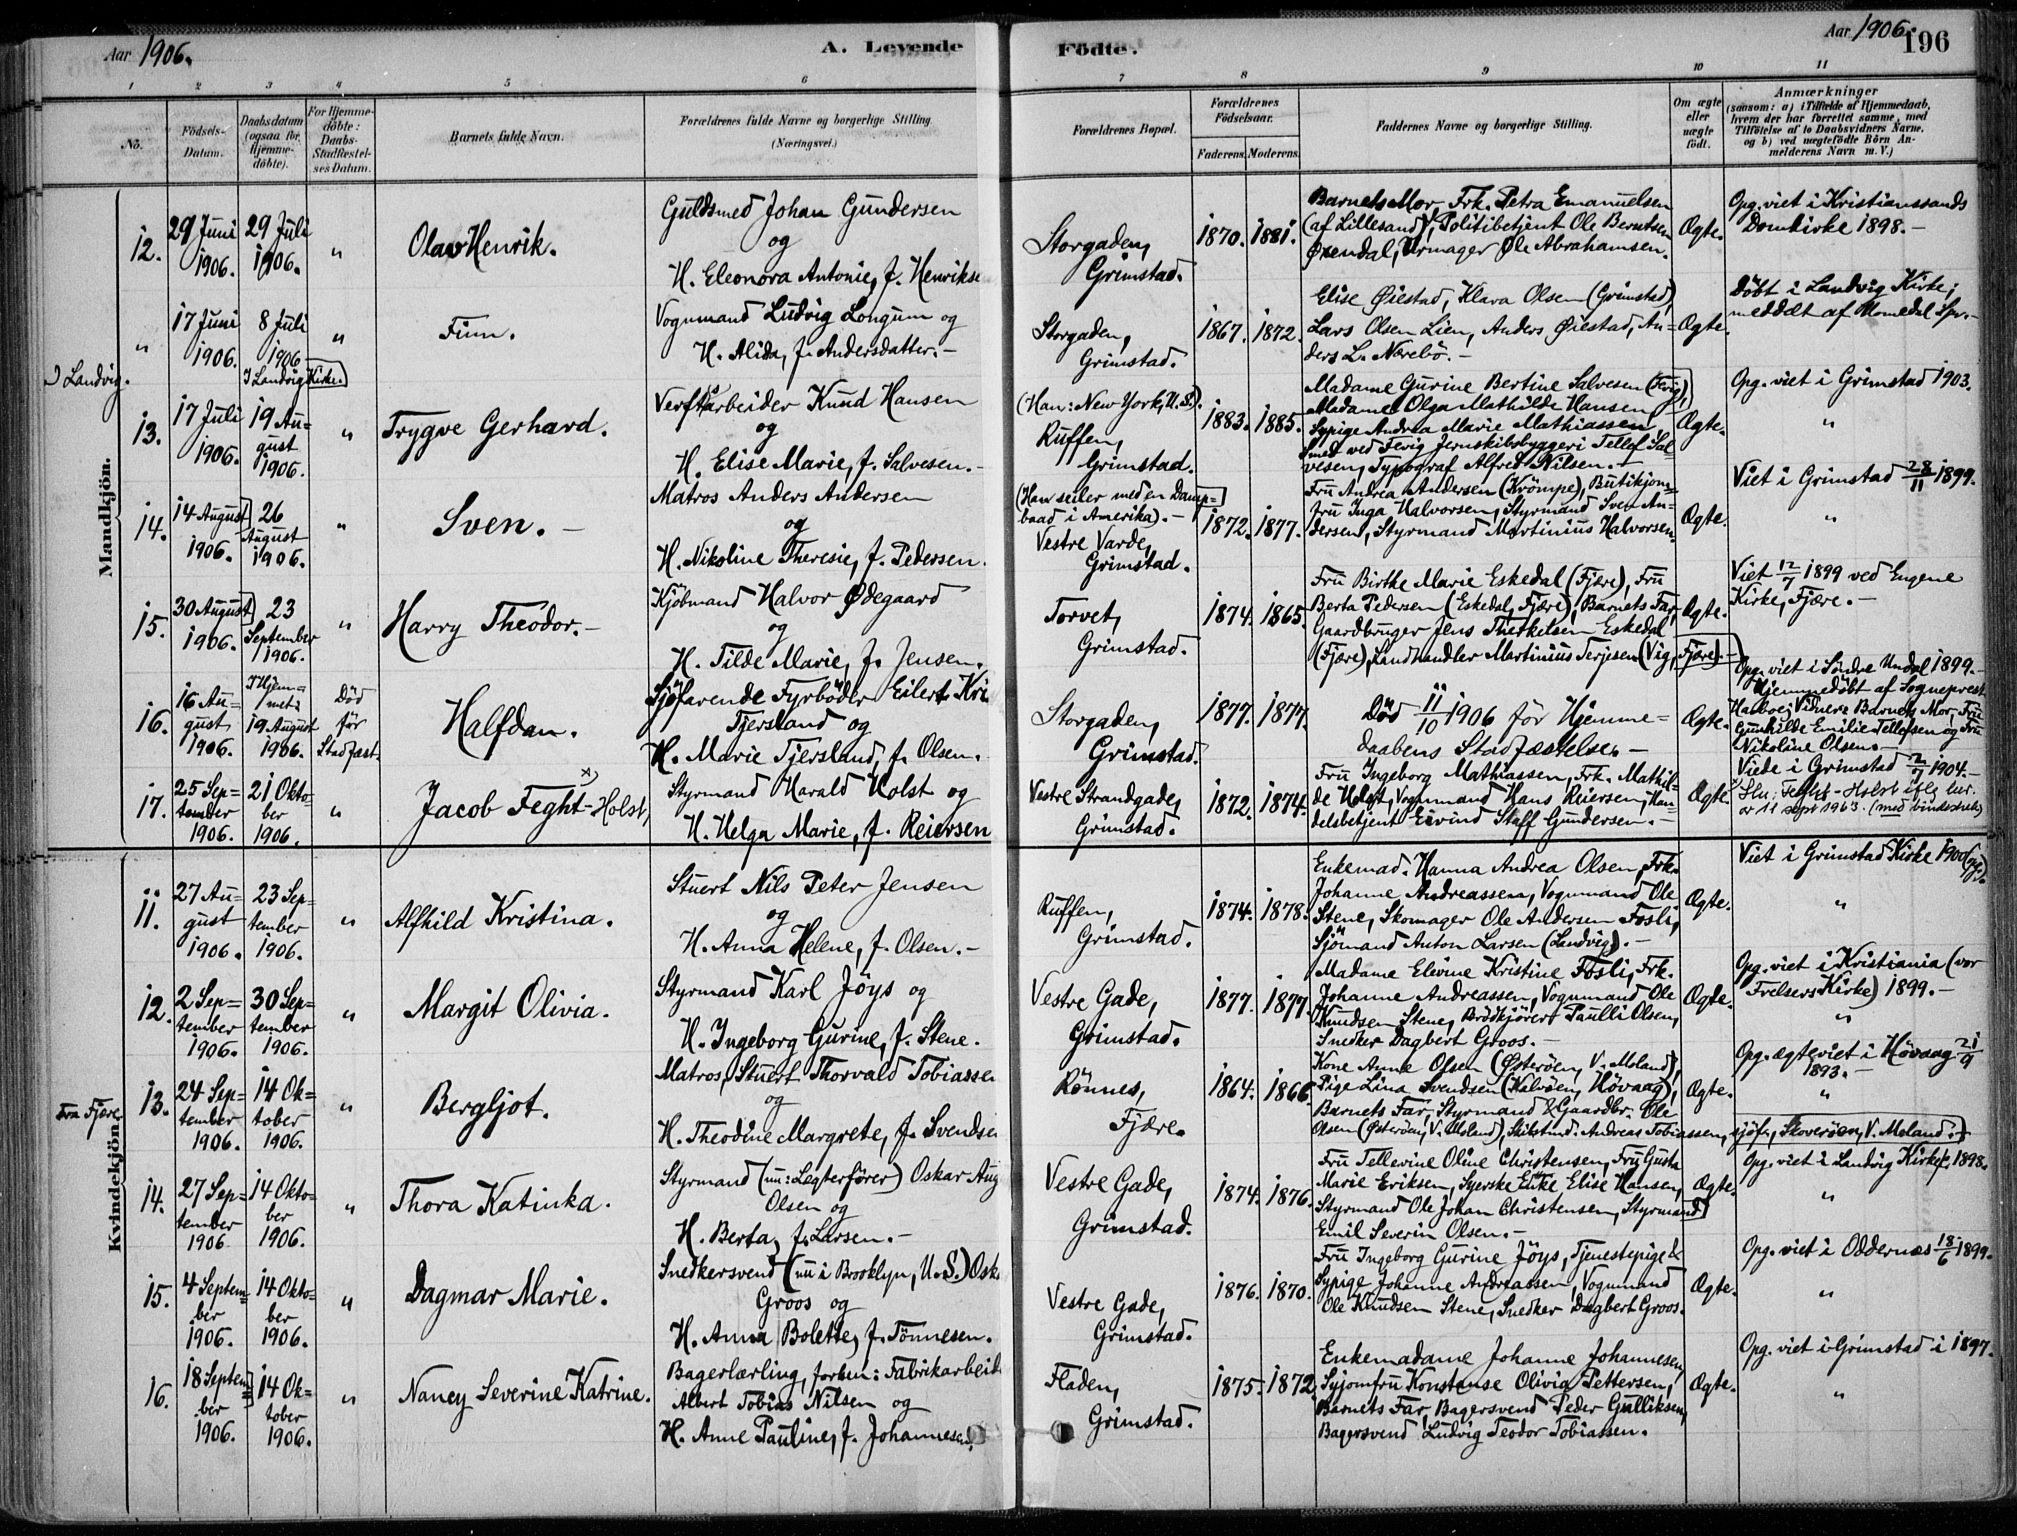 Aar 1906.
A. Levende
Födte.
Aar 1906.
196
1 2 3 4 5 6 7 8 9 10 11
No.
Födsels-
Datum.
Daabsdatum
(ogsaa for
Hjemme-
döbte).
For Hjemme-
döbte:
Daabs-
Stadfæstel-
ses Datum.
Barnets fulde Navn.
Forældrenes fulde Navne og borgerlige Stilling.
(Næringsvei.)
Forældrenes Bopæl.
Forældrenes
Födselsaar.
Faderens. Moderens.
Faddernes Navne og borgerlige Stilling.
Om ægte
eller
uægte
født.
Anmærkninger
(saasom: a) i Tilfælde af Hjemmedaab,
hvem der har forrettet samme, med
Tilföielse af to Daabsvidners Navne,
og b) ved uægtefödte Börn An-
melderens Navn m. V.)
Mandkjön.
12.
29 Juni
1906.
29 Juli
1906.
"
Olav Henrik.
Guldsmed Johan Gundersen
og
H. Eleonora Antonie, f. Henrikse
Storgaden,
Grimstad.
1870. 1881.
Barnets Mor, Frk. Petra Emanuelsen
(af Lillesand), Politibetjent Ole Berntsen
Örendal, Urmager Ole Abrahamsen.
Ægte.
Opg. viet i Kristianssands
Domkirke 1898. –
"
17 Juni
1906.
8 Juli
1906
I Landvig Kirke.
"
Finn.
Vognmand Ludvig Longum og
H. Alida, f. Andersdatter. –
Storgaden,
Grimstad.
1867. 1872.
Elise Øiestad, Klara Olsen (Grimstad),
Lars Olsen Lien, Anders Øiestad, An-
ders L. Nörebö. –
Ægte.
Döbt i Landvig Kirke;
meddelt af Homedal Spr. –
Landvig.
13.
17 Juli
1906.
19 Au-
gust
1906.
"
Trygve Gerhard.
Verftsarbeider Knud Hansen
og
H. Elise Marie, f. Salvesen. –
(Han: New York, U.S.).
Ruffen,
Grimstad.
1883. 1885.
Madame Gurine Bertine Salvesen (Fevig),
Madame Olga Mathilde Hansen,
Sypige Andrea Marie Mathiassen,
Smed ved Fevig Jernskibsbyggeri Tellef Sal-
vesen, Typograf Alfred Nilsen. –
Ægte.
Opg. viet i Grimstad 1903.
"
14.
14 August
1906.
26
August
1906.
"
Sven. –
Matros Anders Andersen
og
H. Nikoline Theresie, f. Pedersen.
(Han seiler med en Damp-
baad i Amerika). –
Vestre Varde,
Grimstad.
1872. 1877.
Fru Andrea Andersen (Krömpe), Butikjom-
fru Inga Halvorsen, Styrmand Sven An-
dersen, Styrmand Martinius Halvorsen.
Ægte.
Viet i Grimstad 28/11 1899.
"
15.
30 August
1906.
23
September
1906.
"
Harry Theodor. –
Kjöbmand Halvor Ødegaard
og
H. Tilde Marie, f. Jensen.
Torvet,
Grimstad.
1874. 1865.
Fru Birthe Marie Eskedal (Fjære), Fru
Berta Pedersen (Eskedal, Fjære), Barnets Far,
Gaardbruger Jens Thetkilsen Eskedal
(Fjære), Landhandler Martinius Terjesen (Vig, Fjære). –
Ægte.
Viet 12/7 1899 ved Engene
Kirke, Fjære. –
16.
16 Au-
gust
1906.
I Hjem-
met:
19 August
1906.
Död
för
Stadfæst.
Halfdan.
Sjöfarende Fyrböder Eilert Kri
Tjersland og
H. Marie Tjersland, f. Olsen.
Storgaden,
Grimstad.
1877. 1877.
Död 11/10 1906 för Hjemme-
daabens Stadfæstelse. –
Ægte.
Opg. viet i Söndre Undal 1899. –
Hjemmedöbt af Sogneprest
Harboe; Vidner: Barnets Mor, Fru
Gunhilde Emilie Tellefsen og Fru
Nikoline Olsen. –
17.
25 Sep-
tember
1906.
21 Okto-
ber
1906.
"
Jacob Feght-Holst, x)
Styrmand Harald Holst og
H. Helga Marie, f. Reiersen
Vestre Strandgade,
Grimstad.
1872. 1874.
Fru Ingeborg Mathiassen, Frk. Mathil-
de Holst, Vognmand Hans Reiersen, Han-
delsbetjent Eivind Staff Gundersen. –
Ægte.
Viede i Grimstad 2/7 1904. –
Feght-Holst iflg.
11 sept 1963. (med bindestrek)
Kvindekjön.
11.
27 Au-
gust
1906.
23 Sep-
tember
1906.
"
Alfhild Kristina.
Stuert Nils Peter Jensen
og
H. Anna Helene, f. Olsen. –
Ruffen,
Grimstad.
1874. 1878.
Enkemad. Hanna Andrea Olsen, Frk.
Johanne Andreassen, Vognmand Ole
Stene, Skomager Ole Andersen Fosli,
Sjömand Anton Larsen (Landvig). –
Ægte.
Viet i Grimstad Kirke 1900 (opg.).
"
12.
2 Sep-
tember
1906.
30 Sep-
tember
1906.
"
Margit Olivia.
Styrmand Karl Jöys og
H. Ingeborg Gurine, f. Stene.
Vestre Gade,
Grimstad.
1877. 1877.
Madame Elevine Kristine Fosli, Frk.
Johanne Andreassen, Vognmand Ole
Knudsen Stene, Brödkjörer Paulli Olsen,
Snedker Dagbert Groos. –
Ægte.
Opg. viet i Kristiania (vor
Frelsers Kirke) 1899. –
"
Fra Fjære
13.
24 Sep-
tember
1906.
14 Ok-
tober
1906.
"
Bergljot.
Matros, Stuert Thorvald Tobiassen
og
H. Theodine Margrete, f. Svendse
Rönnes,
Fjære.
1864. 1866.
Kone Anne Olsen (Østeröen, V. Moland),
Pige Lina Svendsen (Kalvöen, Hövaag),
Barnets Far, Styrmand & Gaardbr. Ole
Olsen (Østeröen, V. Moland), Skibstmd. Andreas Tobiassen, sjöf., Skoveröen, V. Moland. –
Ægte.
Opg. ægteviet i Hövaag 21/9
1893. –
"
14.
27 Sep-
tember
1906
14 Okto-
ber
1906.
"
Thora Katinka.
Styrmand (nu: Legterförer) Oskar Aug
Olsen og
H. Berta, f. Larsen. –
Vestre Gade,
Grimstad.
1874. 1876.
Fru Tellevine Oline Christensen, Fru Gusta
Marie Eriksen, Syerske Enke Elise Hansen,
Styrmand Ole Johan Christensen, Styrmand
Emil Severin Olsen. –
Ægte.
Opg. viet i Landvig Kirke 1898.
"
15.
4 Septem-
ber
1906.
14 Okto-
ber
1906.
"
Dagmar Marie.
Snedkersvend (nu i Brooklyn, U.S.) Osk
Groos og
H. Anna Bolette, f. Tönnesen.
Vestre Gade,
Grimstad.
1876. 1870.
Fru Ingeborg Gurine Jöys, Tjenestepige &
Sypige Johanne Andreassen, Vognmand
Ole Knudsen Stene, Snedker Dagbert Groos.
Ægte.
Opg. viet i Oddernæs 18/6 1899.
"
16.
18 Septem-
ber
1906.
14 Ok-
tober
1906.
"
Nancy Severine Katrine.
Bagerlærling, forhen: Fabrikarbeid
Albert Tobias Nilsen og
H. Anne Pauline, f. Johannesen,
Fladen,
Grimstad.
1875. 1872
Enkemadame Johanne Johannesen,
Syjomfru Konstanse Olivia Pettersen,
Barnets Far, Bagersvend Peder Gulliksen,
Bagersvend Ludvig Teodor Tobiassen.
Ægte.
Opg. viet i Grimstad i 1897.
"